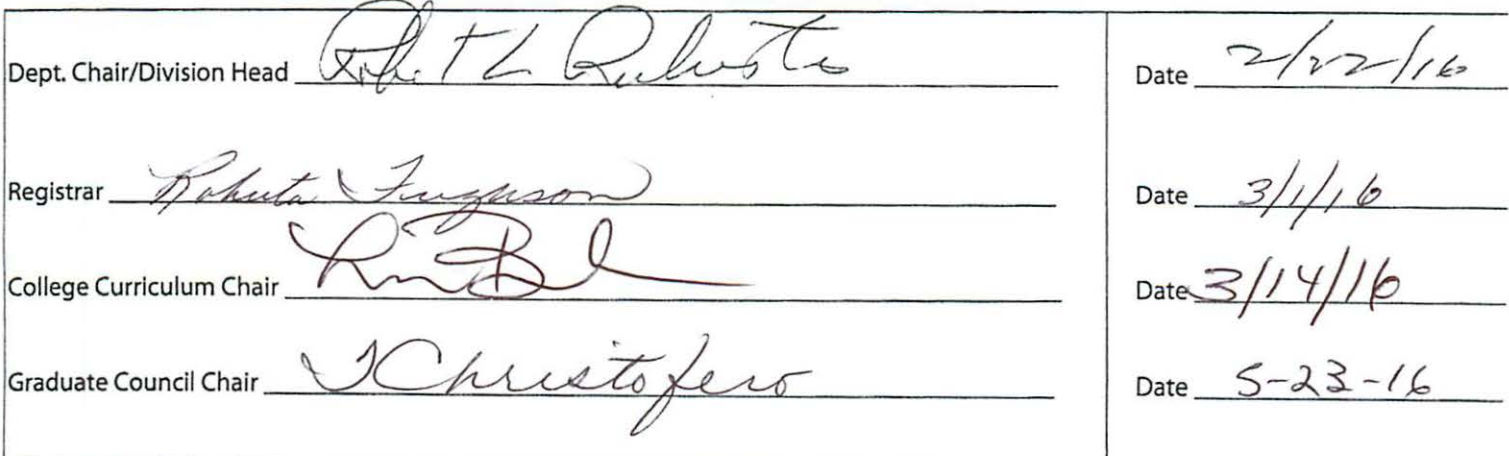 Dept. Chair/Division Head Robert L Date 2/22/16
Registrar Roberta Ferguson Date 3/1/16
College Curriculum Chair Date 3/14/16
Graduate Council Chair TChristofero Date 5-23-16